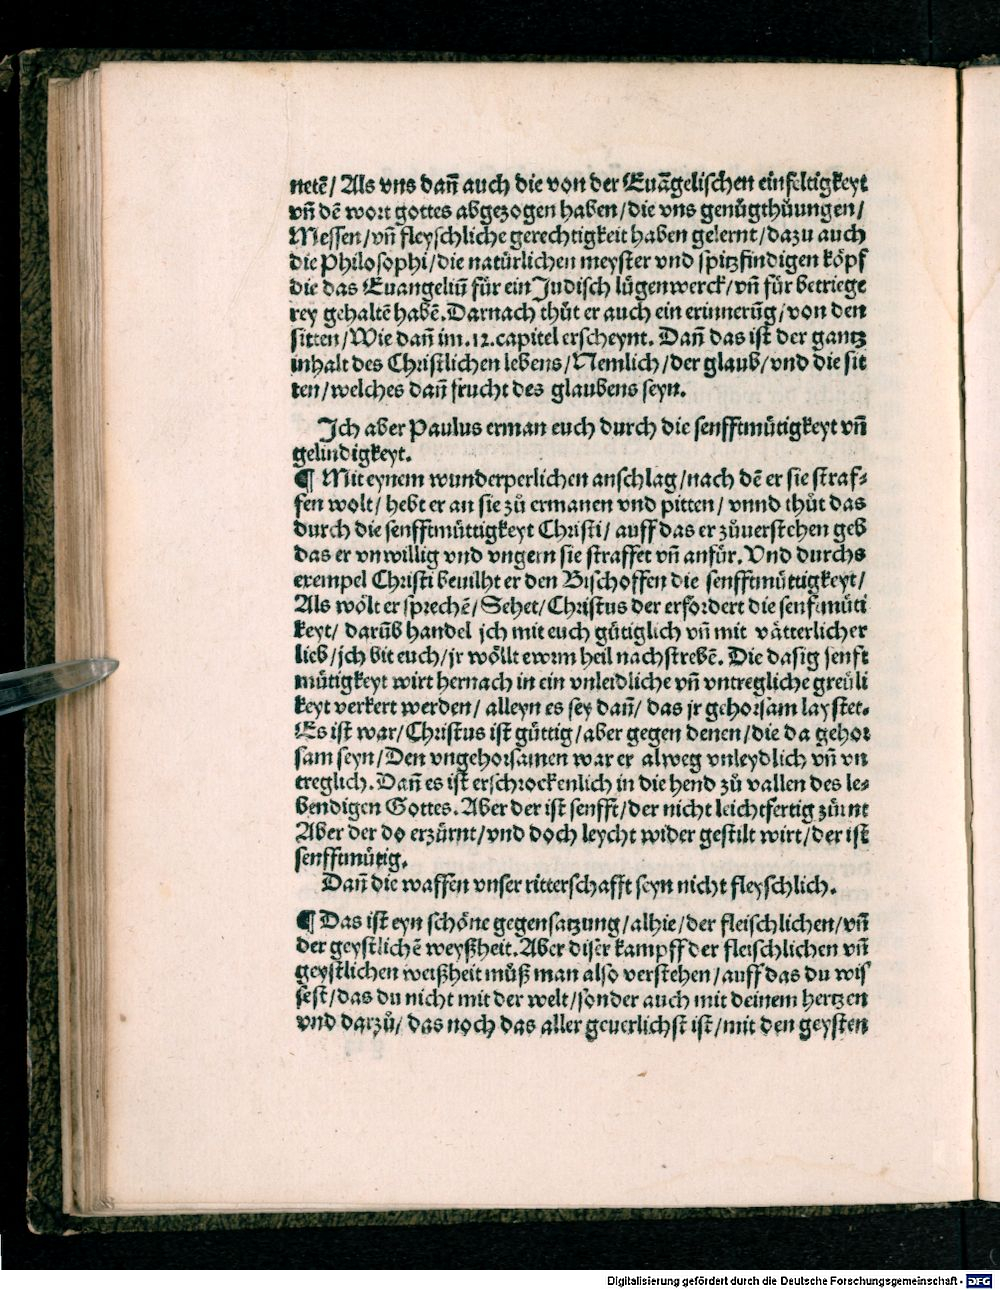 netē/ Als vns dañ auch die von der Euāgelischen einfeltigkeyt
vñ dē wort gottes abgezogen haben/die vns genůgthůungen/
Messen/vñ fleyschliche gerechtigkeit haben gelernt/dazu auch
die Philosophi/die natürlichen meyster vnd spitzfindigen köpf
die das Euangeliū für ein Judisch lügenwerck/vñ für betriege
rey gehaltē habē. Darnach thůt er auch ein erinnerūg/von den
sitten/Wie dañ im .12. capitel erscheynt. Dañ das ist der gantz
inhalt des Christlichen lebens/Nemlich/der glaub/vnd die sit
ten/welches dañ frucht des glaubens seyn.
Ich aber Paulus erman euch durch die senfftmütigkeyt vñ
gelindigkeyt.
¶ Mit eynem wunderperlichen anschlag/nach dē er sie straf-
fen wolt/ hebt er an sie zů ermanen vnd pitten/ vnnd thůt das
durch die senfftmüttigkeyt Christi/ auff das er zůuerstehen geb
das er vnwillig vnd vngern sie straffet vñ anfür. Vnd durchs
exempel Christi beuilht er den Bischoffen die senfftmüttigkeyt/
Als wölt er sprechē/ Sehet/Christus der erfordert die senfftmüti
keyt/ darūb handel ich mit euch gütiglich vñ mit vätterlicher
lieb/ich bit euch/jr wöllt ewrm heil nachstrebē. Die dasig senft
mütigkeyt wirt hernach in ein vnleidliche vñ vntregliche greüli
keyt verkert werden/ alleyn es sey dañ/ das jr gehorsam laystet.
Es ist war/Christus ist güttig/aber gegen denen/die da gehor
sam seyn/Den vngehorsamen war er alweg vnleydlich vñ vn
treglich. Dañ es ist erschrockenlich in die hend zů vallen des le-
bendigen Gottes. Aber der ist senfft/der nicht leichtfertig zürnt
Aber der do erzürnt/vnd doch leycht wider gestilt wirt/der ist
senfftmütig.
Dañ die waffen vnser ritterschafft seyn nicht fleyschlich.
¶ Das ist eyn schöne gegensatzung/alhie/der fleischlichen/vñ
der geystlichē weyßheit. Aber diser kampff der fleischlichen vñ
geystlichen weißheit můß man also verstehen/auff das du wis
sest/das du nicht mit der welt/sonder auch mit deinem hertzen
vnd darzů/ das noch das aller geuerlichst ist/mit den geysten
Digitalisierung gefördert durch die Deutsche Forschungsgemeinschaft - DFG